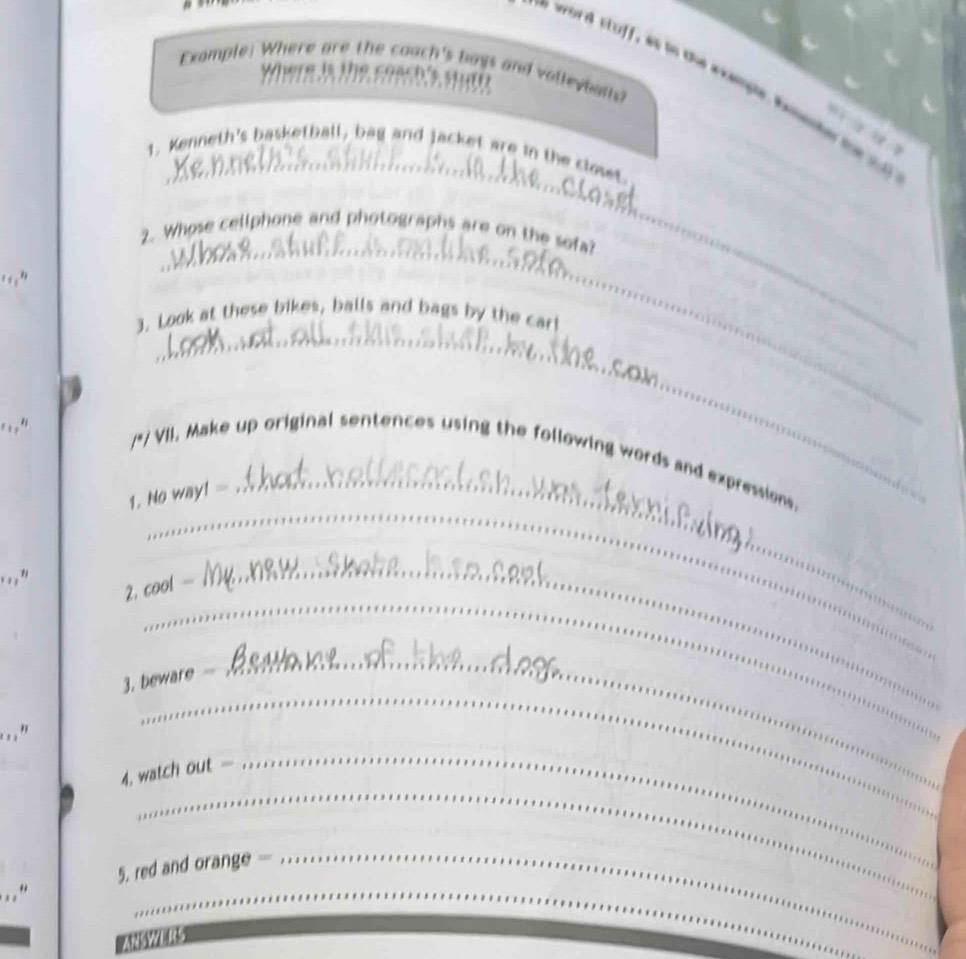 word stuff, as in the example. Remember
Example: Where are the coach's bags and volleyballs?
Where is the coach's stuff?
1. Kenneth's basketball, bag and jacket are in the closet.
Kenneth's stuff is in the closet
2. Whose cellphone and photographs are on the sofa?
Whose stuff is on the sofa
3. Look at these bikes, balls and bags by the car!
Look at all this stuff by the car
/*/ VII. Make up original sentences using the following words and expressions.
1. No way! - that was terrifying!
2. cool - My new skate is so cool
3. beware - Beware of the dogs
4. watch out -
5. red and orange -
ANSWERS